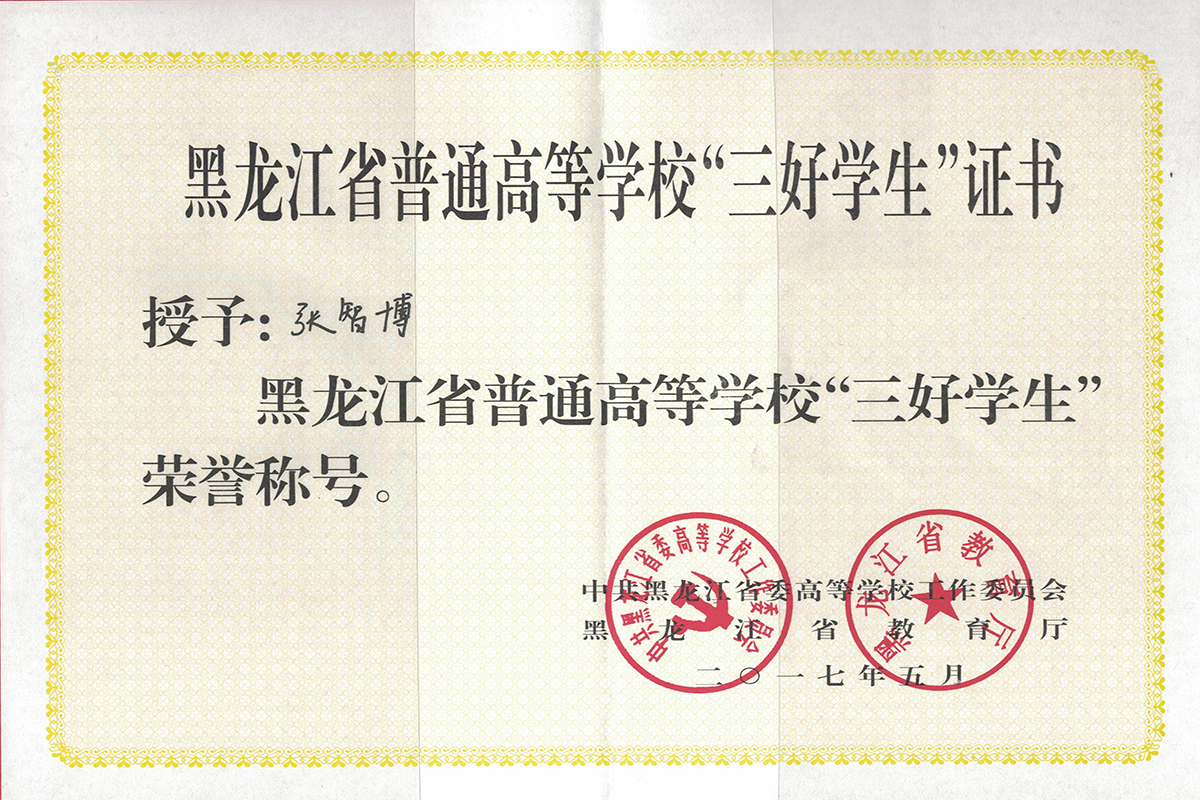 黑龙江省普通高等学校“三好学生”证书
授予：张智博
黑龙江省普通高等学校“三好学生”
荣誉称号。
中共黑龙江省委高等学校工作委员会
黑龙江省教育厅
二〇一七年五月
中共黑龙江省委高等学校工作委员会
黑龙江省教育厅